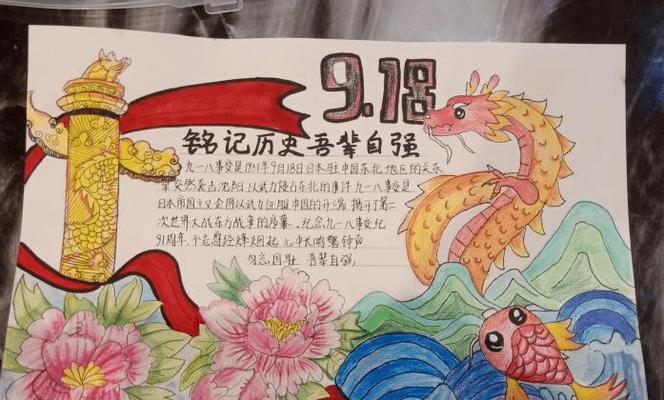 9.18
铭记历史吾辈自强
九一八事变是1931年9月18日日本驻中国东北地区的关东
军突然袭击沈阳 以武力侵占东北的事件 九一八事变是
日本帝国主义企图以武力征服中国的开端 揭开了第二
次世界大战东方战争的序幕 纪念九一八事变纪
91周年 不忘曾经烽火起 心中长鸣警钟声
勿忘国耻 吾辈自强